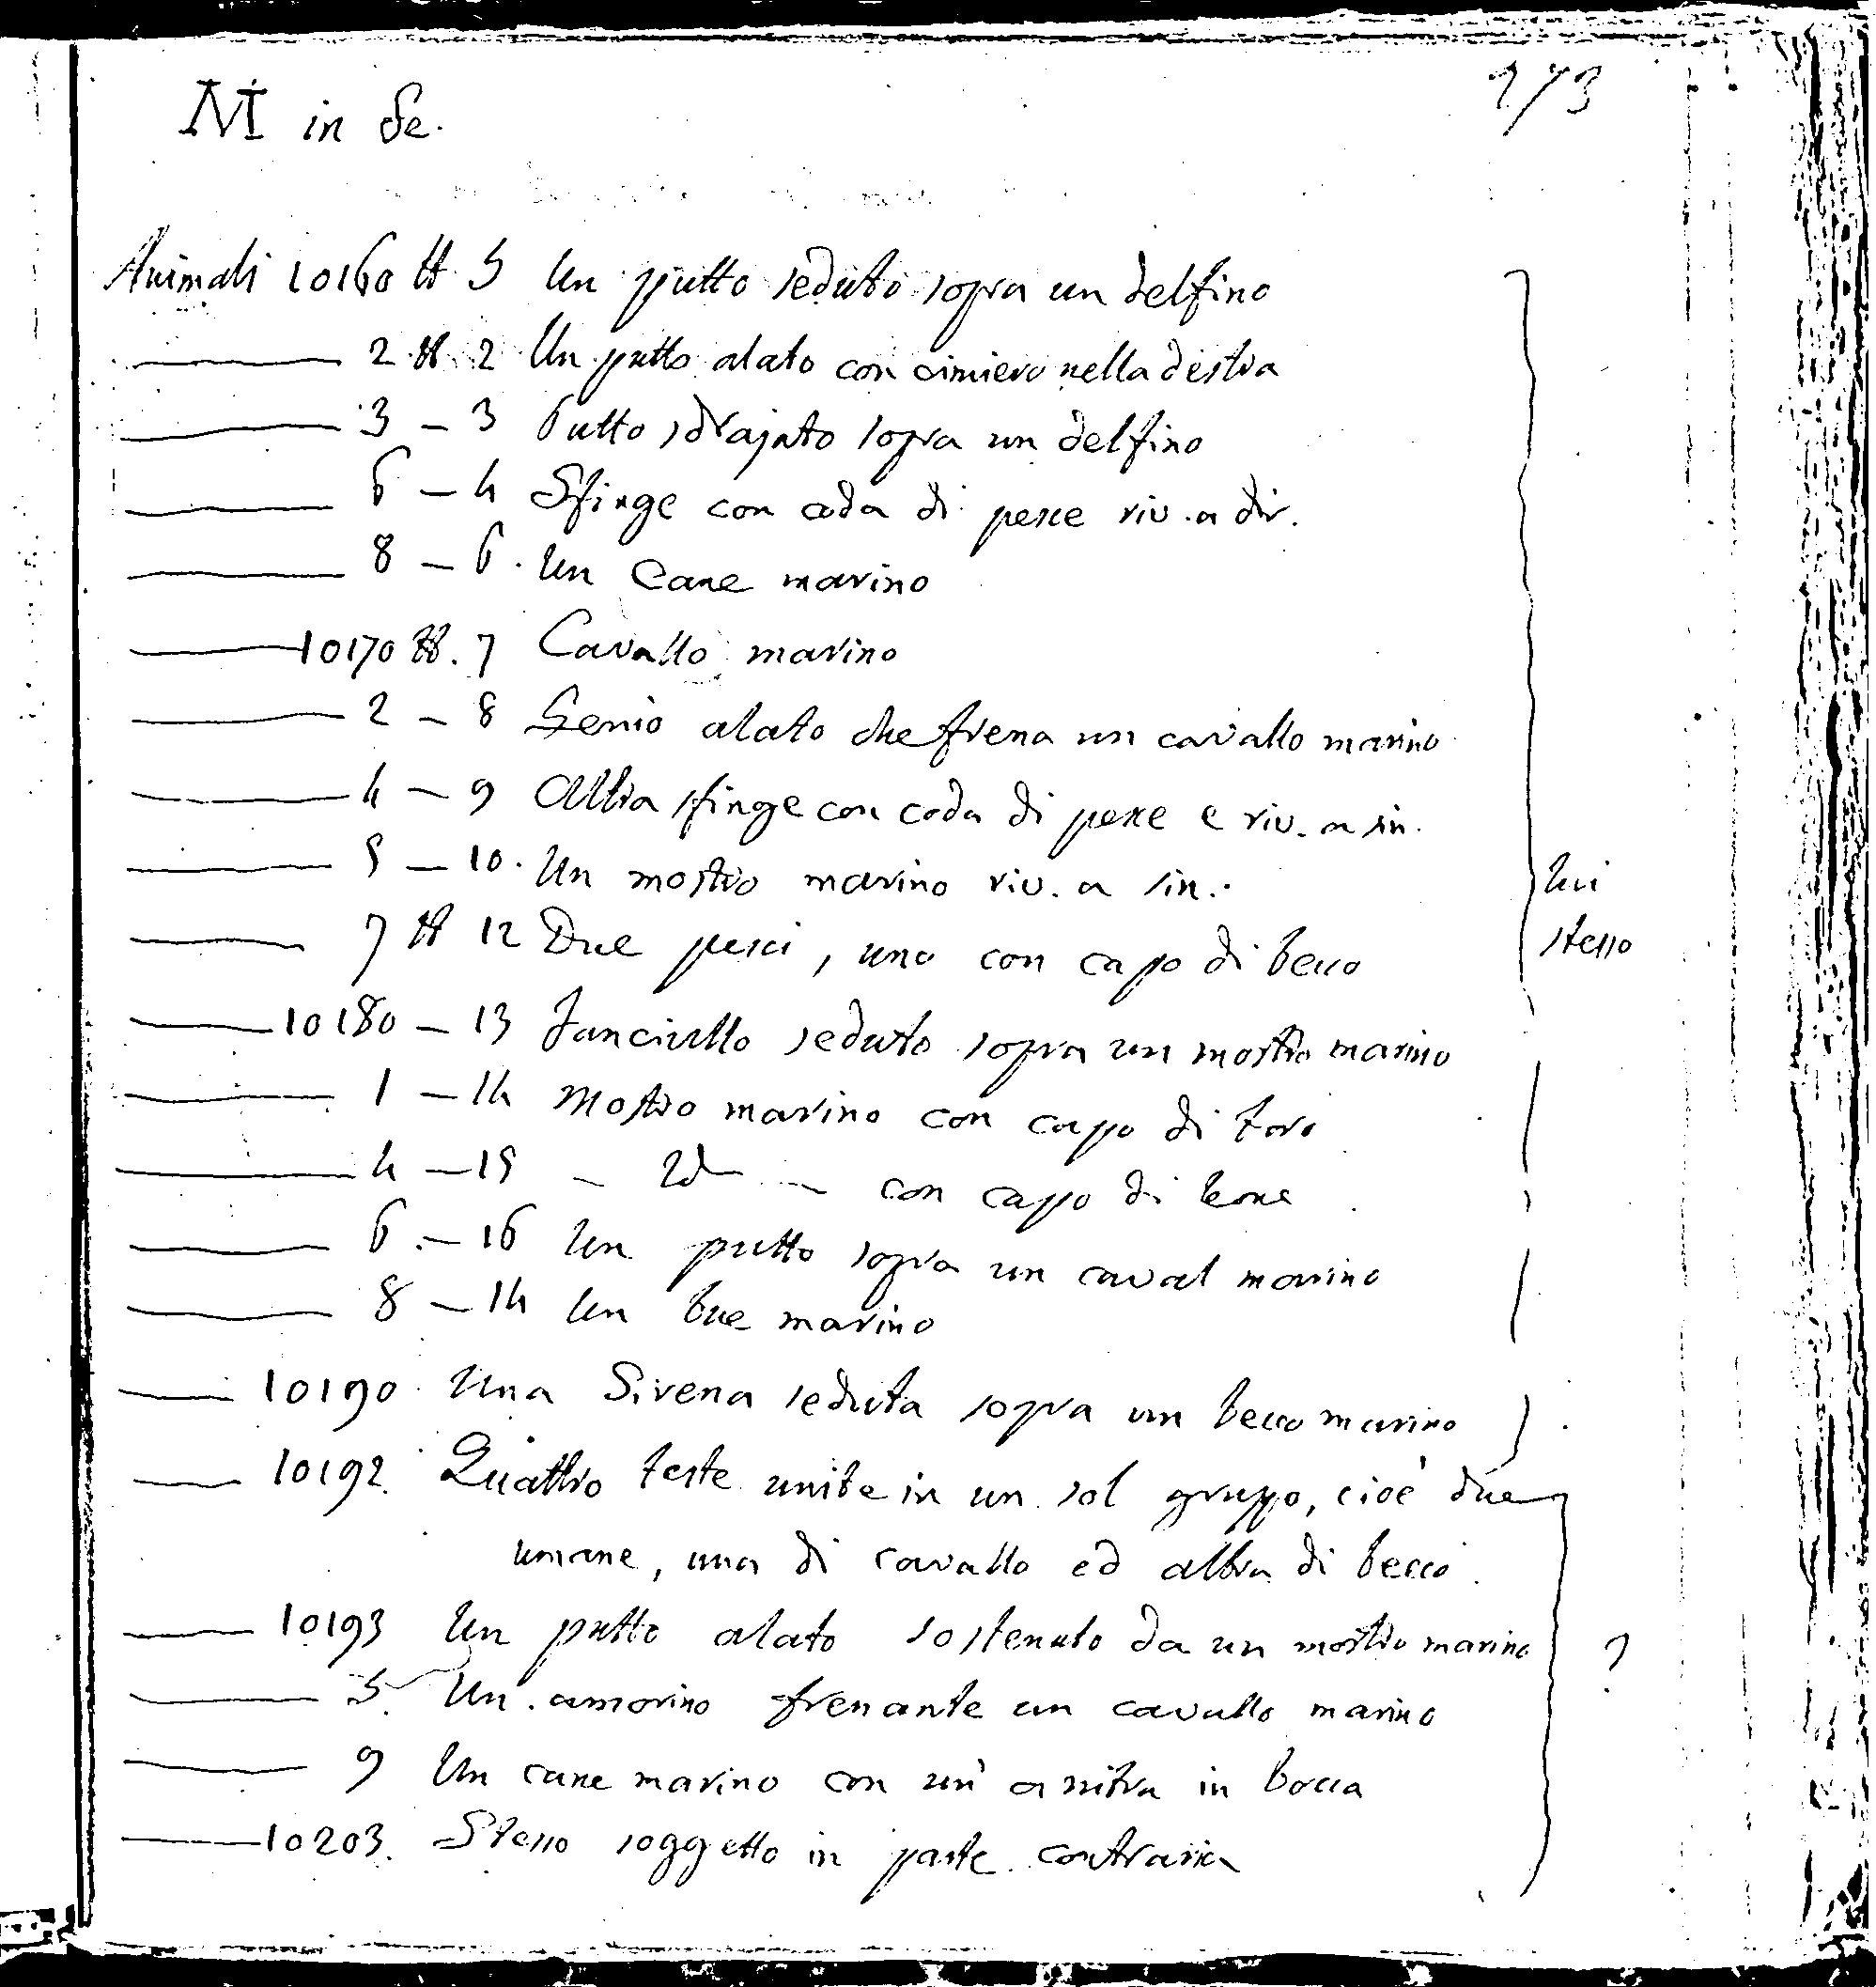 M in Se.
273
Animali 10160 H. 5 Un putto seduto sopra un delfino
2 H. 2 Un putto alato con cimiero nella destra
3 – 3 Putto sdrajato sopra un delfino
6 – 4 Sfinge con coda di pesce riv. a dir.
8 – 6. Un Cane marino
10170 H. 7 Cavallo marino
2 – 8 Genio alato che frena un cavallo marino
4 – 9 Altra sfinge con coda di pesce e riv. a sin.
5 – 10. Un mostro marino riv. a sin.
lui
7 H 12 Due pesci, uno con capo di becco
stesso
10180 – 13 Fanciullo seduto sopra un mostro marino
1 – 14 Mostro marino con capo di toro
4 – 15 – Id – con capo di leone
6 – 16 Un putto sopra un caval marino
8 – 14 Un bue marino
10190 Una Sirena seduta sopra un becco marino
10192. Quattro teste unite in un sol gruppo, cioè due
umane, una di cavallo ed altra di becco.
10193 Un putto alato sostenuto da un mostro marino ?
5. Un amorino frenante un cavallo marino
9 Un cane marino con un' anitra in bocca
10203. Stesso soggetto in parte contraria